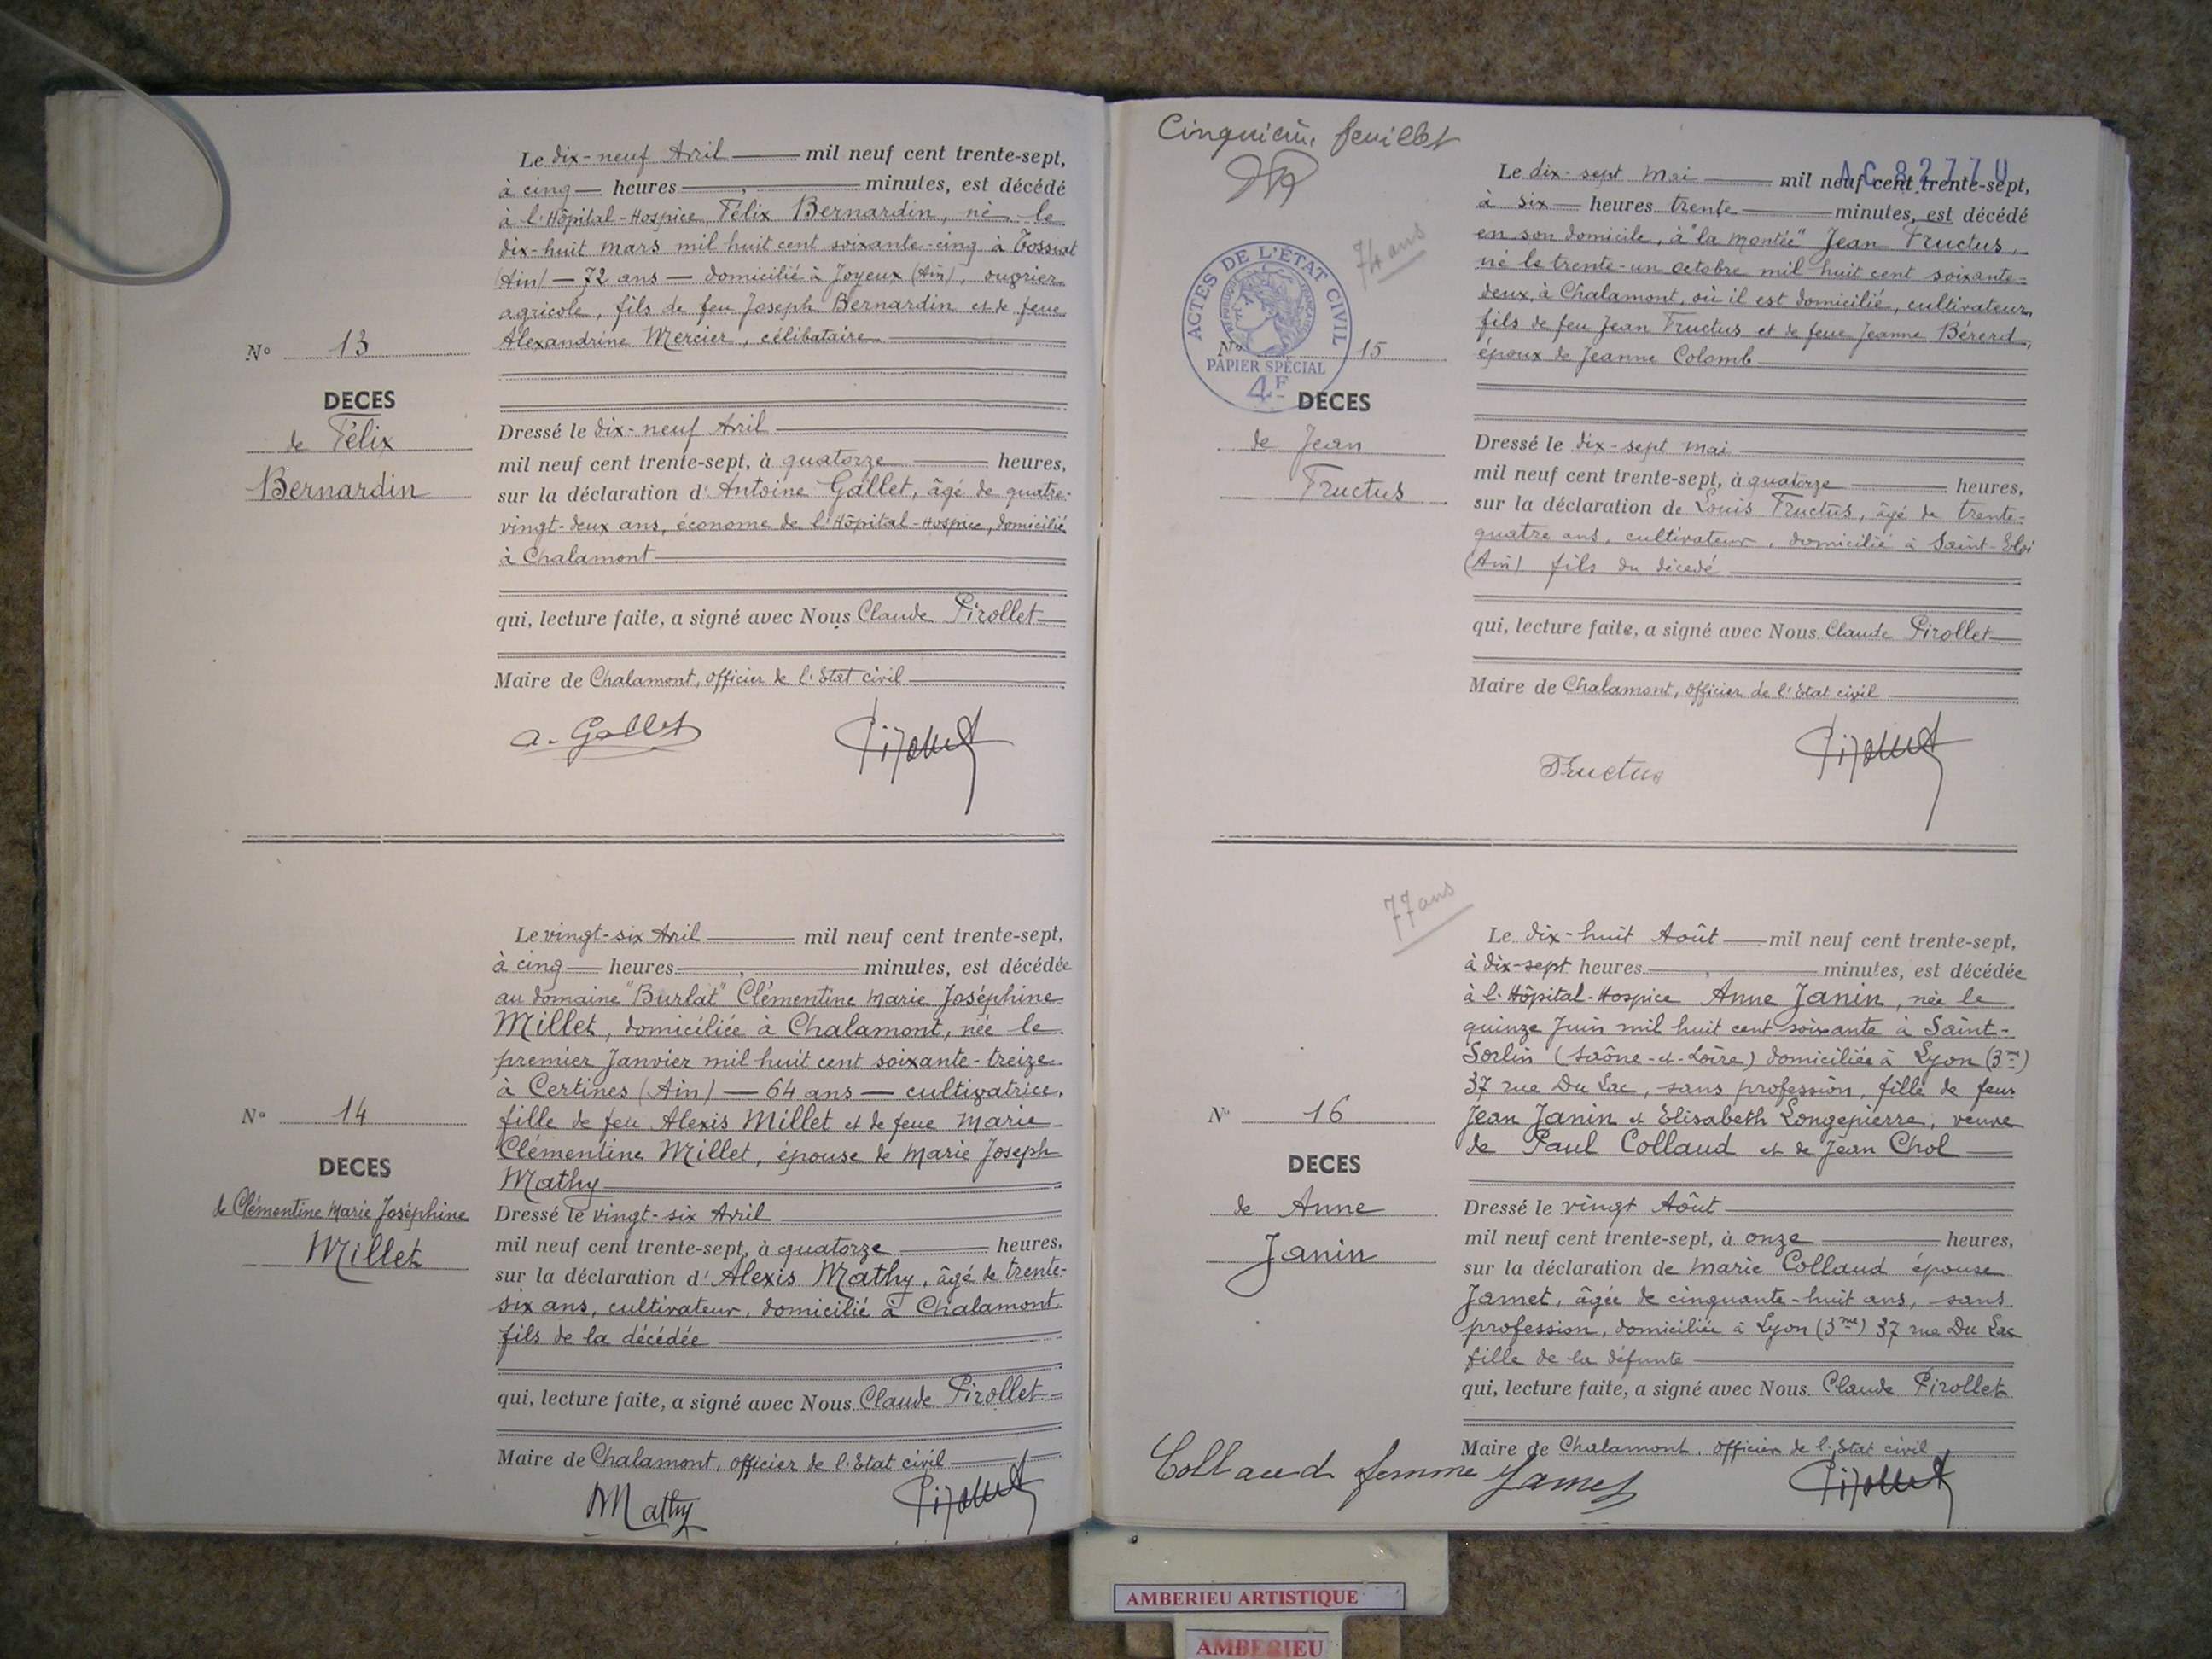 Le dix-neuf Avril mil neuf cent trente-sept,
à cinq heures minutes, est décédé
à l'Hôpital-Hospice, Félix Bernardin, né le
dix-huit mars mil huit cent soixante-cinq à Tossiat
(Ain) — 72 ans — domicilié à Joyeux (Ain), ouvrier
agricole, fils de feu Joseph Bernardin et de feue
Alexandrine Mercier, célibataire
N° 13
DECES
de Félix
Bernardin
Dressé le dix-neuf Avril
mil neuf cent trente-sept, à quatorze heures,
sur la déclaration d'Antoine Gallet, âgé de quatre-
vingt-deux ans, économe de l'Hôpital-Hospice, domicilié
à Chalamont
qui, lecture faite, a signé avec Nous Claude Pirollet
Maire de Chalamont, officier de l'Etat civil
a. Gallet Pirollet
Le vingt-six Avril mil neuf cent trente-sept,
à cinq heures minutes, est décédée
au domaine "Burlat" Clémentine Marie Joséphine
Millet, domiciliée à Chalamont, née le
premier Janvier mil huit cent soixante-treize
à Certines (Ain) — 64 ans — cultivatrice,
fille de feu Alexis Millet et de feue Marie
Clémentine Millet, épouse de Marie Joseph
Mathy
N° 14
DECES
de Clémentine Marie Joséphine
Millet
Dressé le vingt-six Avril
mil neuf cent trente-sept, à quatorze heures,
sur la déclaration d'Alexis Mathy, âgé de trente-
six ans, cultivateur, domicilié à Chalamont
fils de la décédée
qui, lecture faite, a signé avec Nous Claude Pirollet
Maire de Chalamont, officier de l'Etat civil
Mathy Pirollet
Cinquième feuillet
AC 82770
74 ans
Le dix-sept mai mil neuf cent trente-sept,
à six heures trente minutes, est décédé
en son domicile, à "la montée" Jean Fructus,
né le trente-un octobre mil huit cent soixante-
deux, à Chalamont, où il est domicilié, cultivateur,
fils de feu Jean Fructus et de feue Jeanne Bérerd,
époux de Jeanne Colomb
ACTES DE L'ÉTAT CIVIL
RÉPUBLIQUE FRANÇAISE
PAPIER SPÉCIAL
4F
N° 15
DECES
de Jean
Fructus
Dressé le dix-sept mai
mil neuf cent trente-sept, à quatorze heures,
sur la déclaration de Louis Fructus, âgé de trente-
quatre ans, cultivateur, domicilié à Saint-Eloi
(Ain) fils du décédé
qui, lecture faite, a signé avec Nous Claude Pirollet
Maire de Chalamont, officier de l'Etat civil
Fructus Pirollet
77 ans
Le dix-huit Août mil neuf cent trente-sept,
à dix-sept heures minutes, est décédée
à l'Hôpital-Hospice Anne Janin, née le
quinze Juin mil huit cent soixante à Saint-
Sorlin (Saône-et-Loire) domiciliée à Lyon (3me)
37 rue Du Lac, sans profession, fille de feus
Jean Janin et Elisabeth Longepierre, veuve
de Paul Collaud et de Jean Chol
N° 16
DECES
de Anne
Janin
Dressé le vingt Août
mil neuf cent trente-sept, à onze heures,
sur la déclaration de Marie Collaud épouse
Jamet, âgée de cinquante-huit ans, sans
profession, domiciliée à Lyon (3me) 37 rue Du Lac
fille de la défunte
qui, lecture faite, a signé avec Nous Claude Pirollet
Maire de Chalamont, officier de l'Etat civil
Collaud femme Jamet Pirollet
AMBERIEU ARTISTIQUE
AMBERIEU